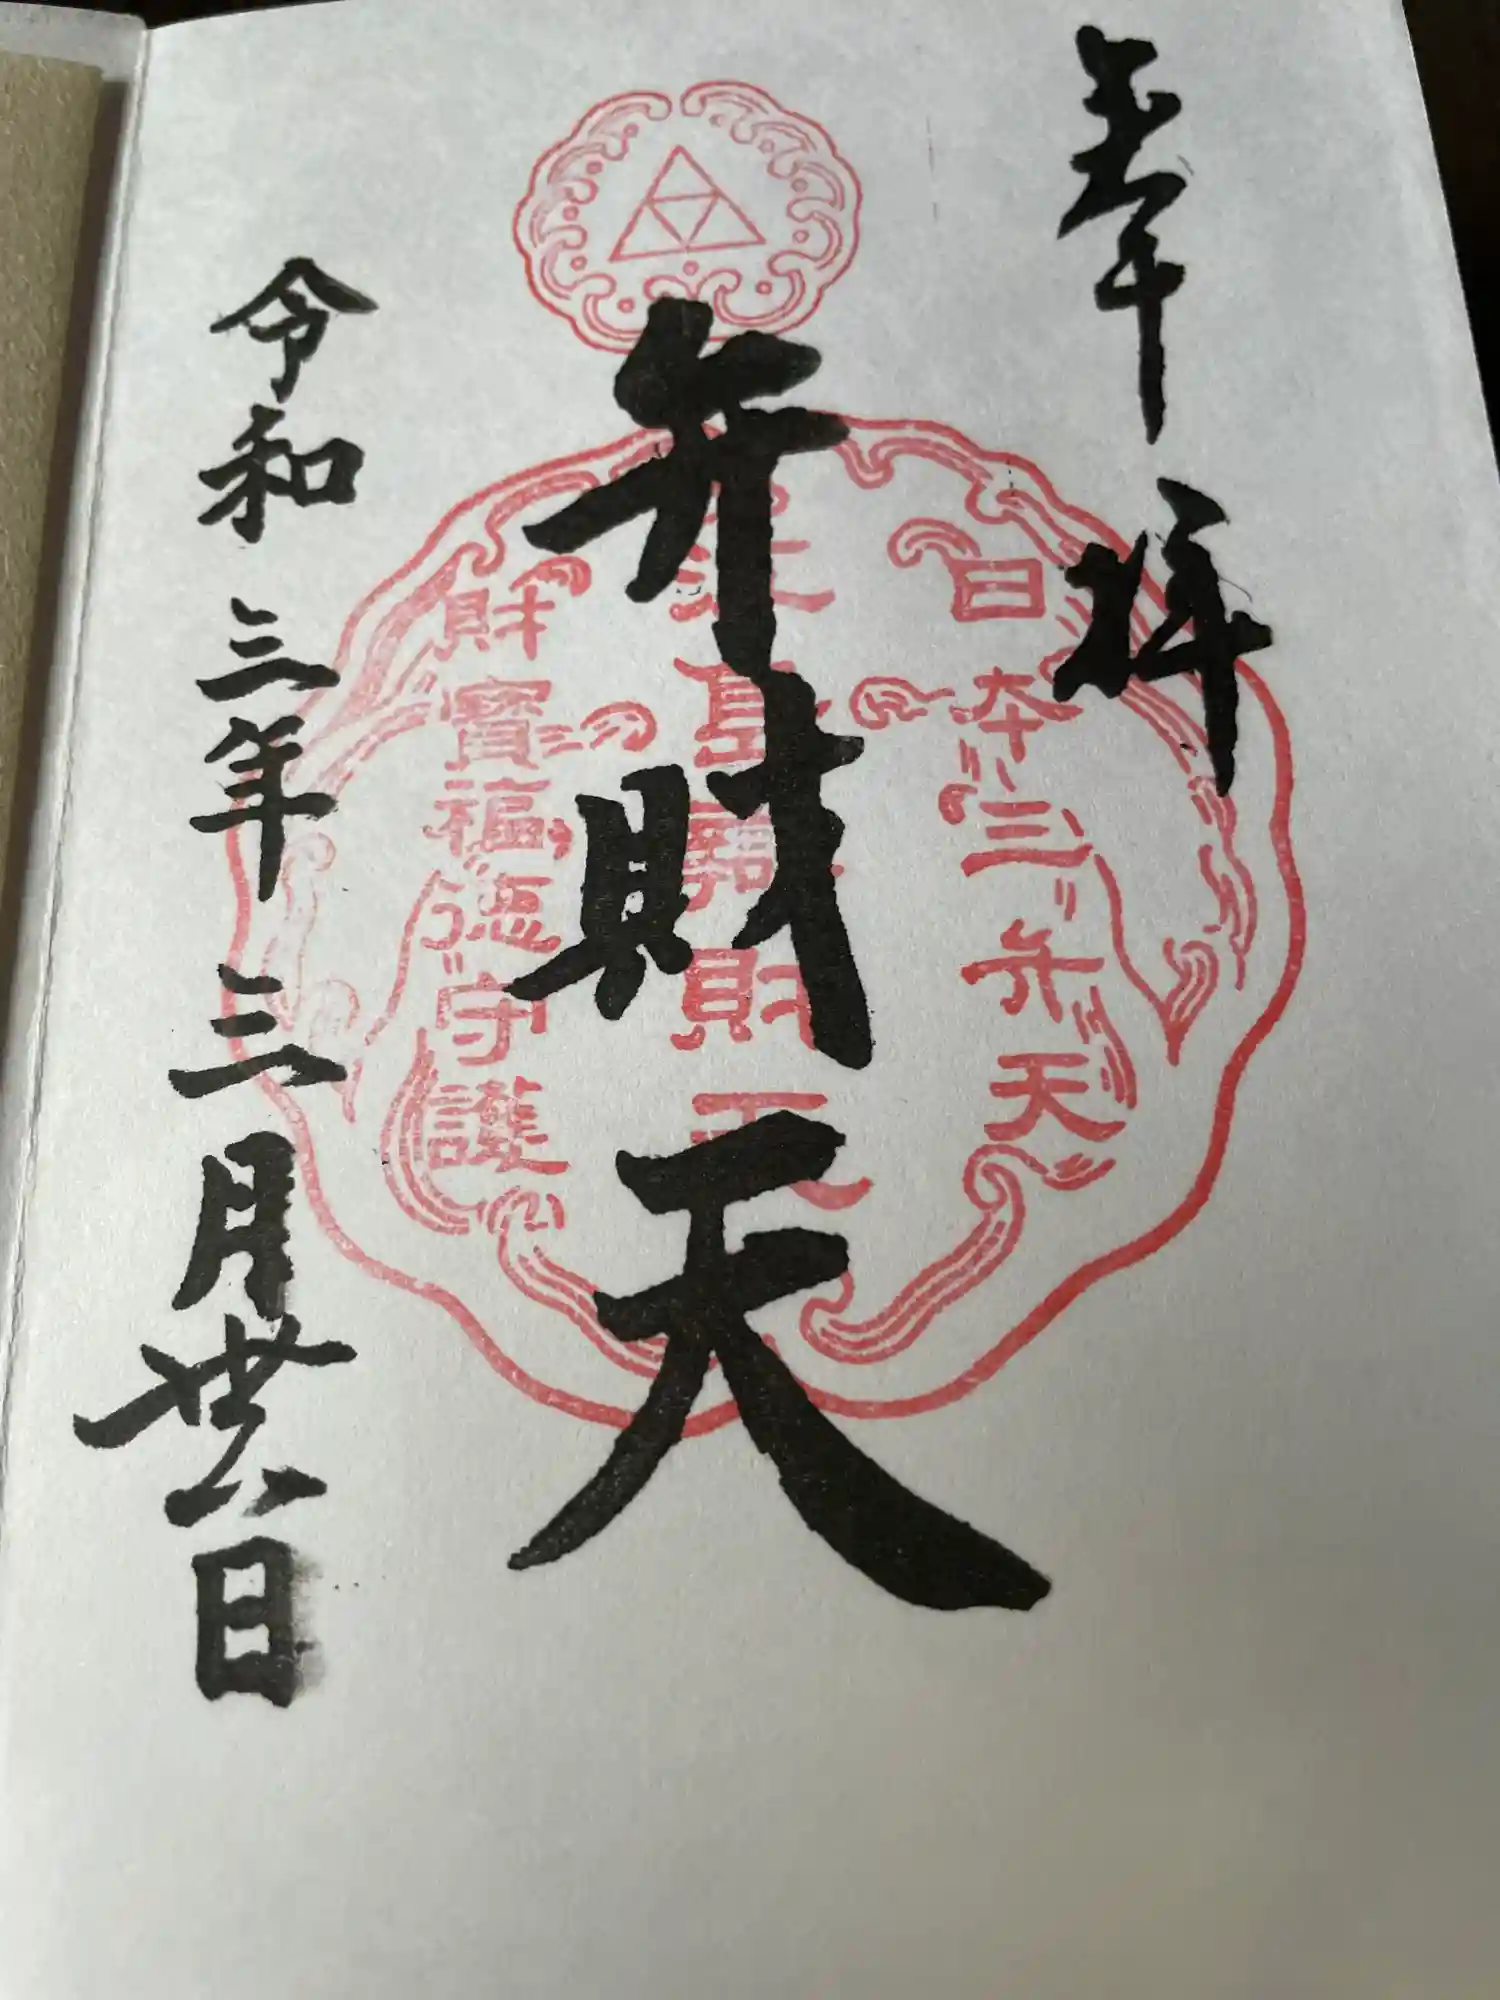 奉拝
日本三弁天
江島辯財天
弁財天
財寳福徳守護
令和三年三月廿八日